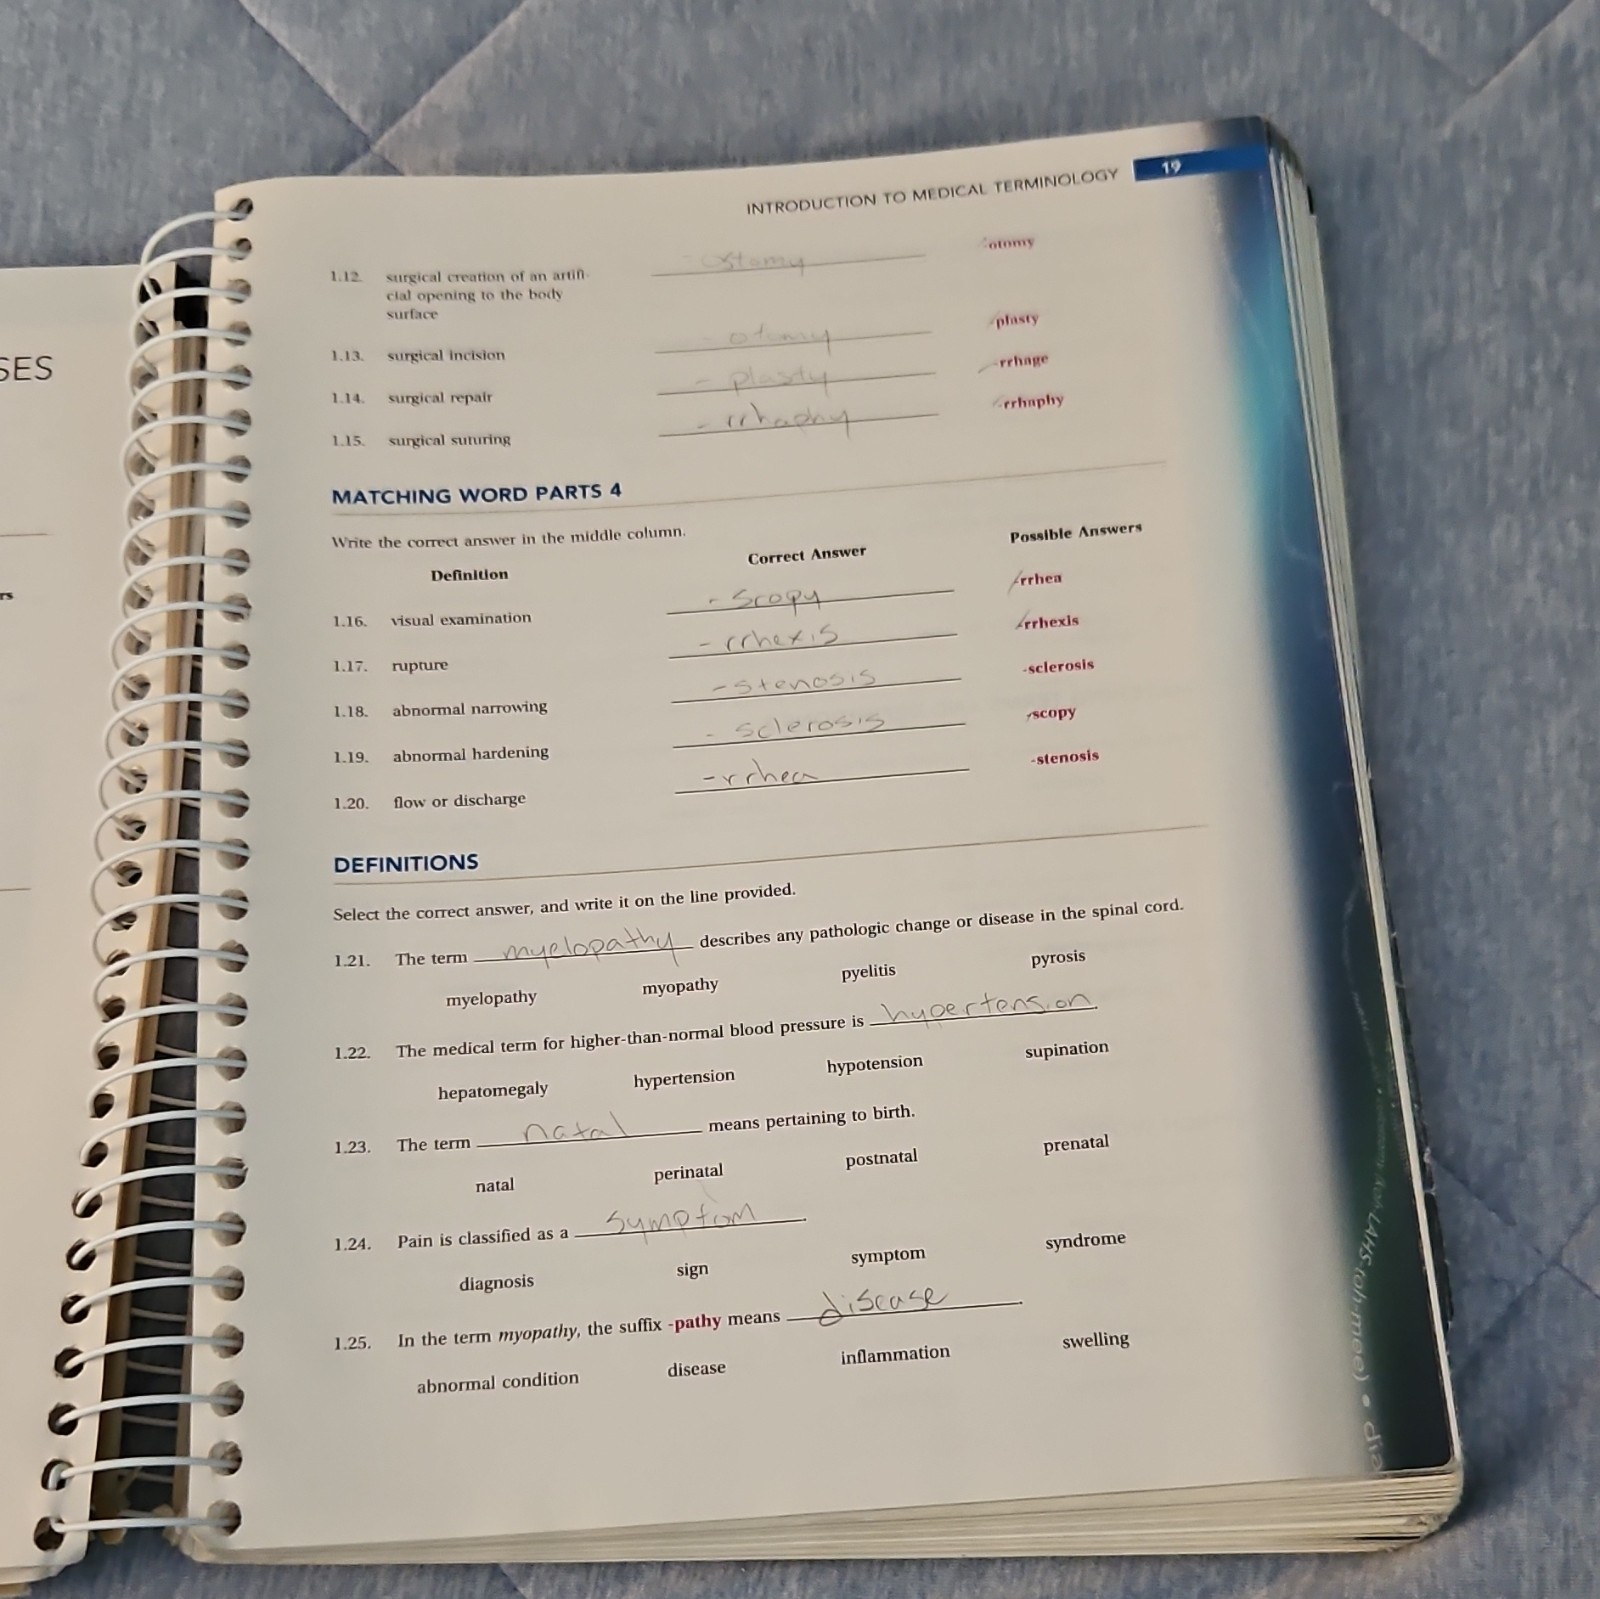 SES
rs
INTRODUCTION TO MEDICAL TERMINOLOGY 19
-otomy
1.12. surgical creation of an artifi- -ostomy
cial opening to the body
surface
-plasty
1.13. surgical incision -otomy
-rrhage
1.14. surgical repair -plasty
-rrhaphy
1.15. surgical suturing -rrhaphy
MATCHING WORD PARTS 4
Write the correct answer in the middle column.
Definition Correct Answer Possible Answers
1.16. visual examination -scopy -rrhea
1.17. rupture -rrhexis -rrhexis
1.18. abnormal narrowing -stenosis -sclerosis
1.19. abnormal hardening -sclerosis -scopy
1.20. flow or discharge -rrhea -stenosis
DEFINITIONS
Select the correct answer, and write it on the line provided.
1.21. The term myelopathy describes any pathologic change or disease in the spinal cord.
myelopathy myopathy pyelitis pyrosis
1.22. The medical term for higher-than-normal blood pressure is hypertension
hepatomegaly hypertension hypotension supination
1.23. The term natal means pertaining to birth.
natal perinatal postnatal prenatal
1.24. Pain is classified as a symptom.
diagnosis sign symptom syndrome
1.25. In the term myopathy, the suffix -pathy means disease.
abnormal condition disease inflammation swelling